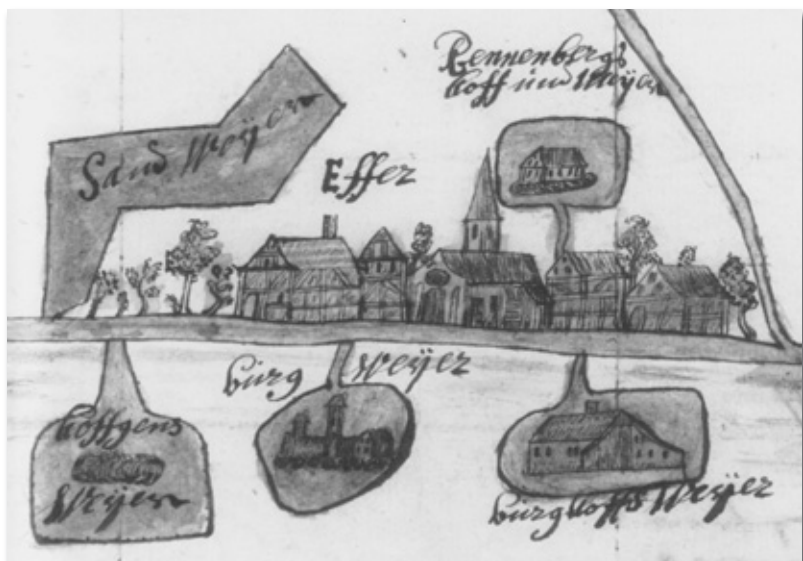 Rennenbergs
hoff und Weÿer
Sand Weÿer
Effer
bürg Weÿer
hoffgens
Weÿer
bürghoffs Weÿer